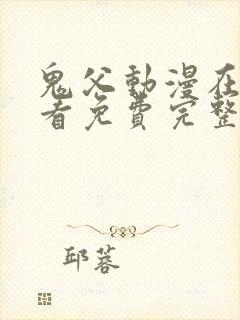 鬼父動漫在
看免費完整
邱蓉